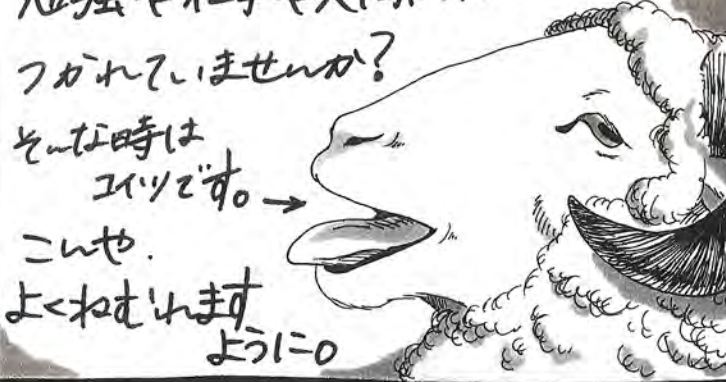 つかれていませんか?
そんな時は
コイツです。→
こんや.
よくねむれます
ように。